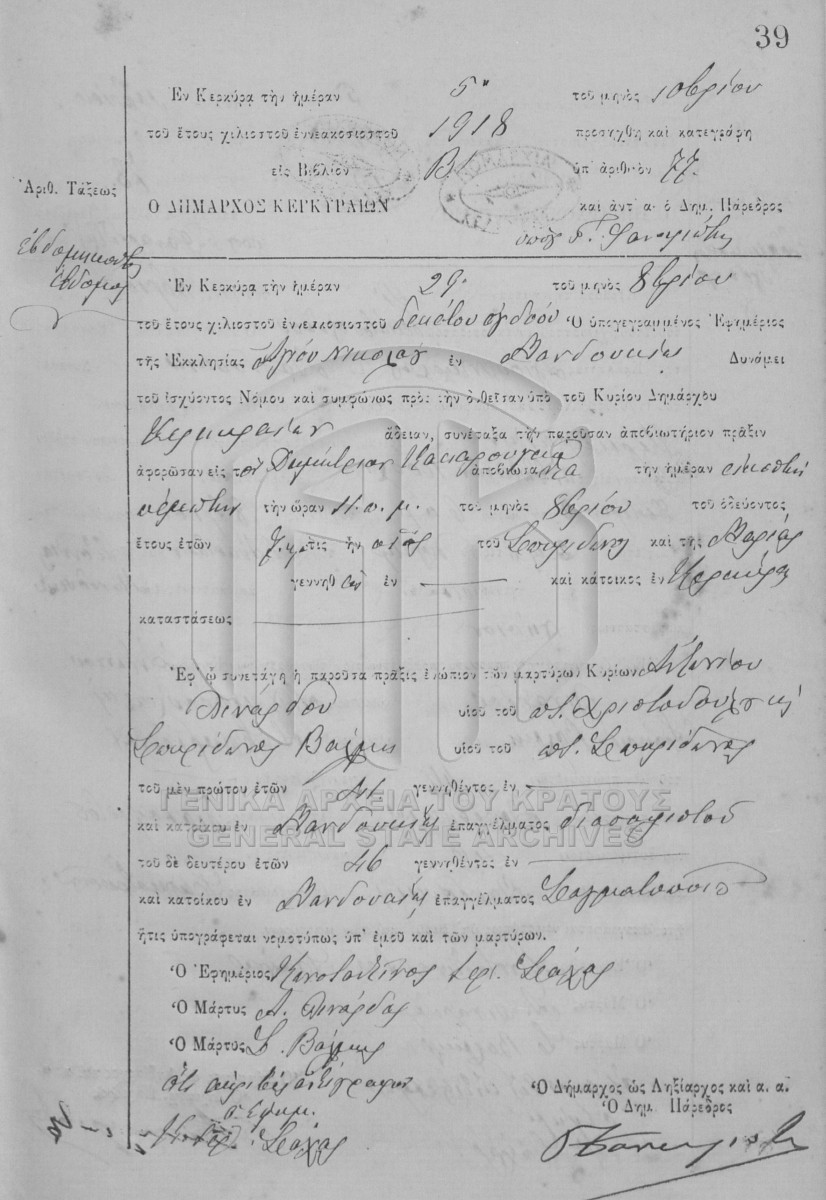 39
Ἐν Κερκύρᾳ τὴν ἡμέραν 5 τοῦ μηνὸς 10βρίου
τοῦ ἔτους χιλιοστοῦ ἐννεακοσιοστοῦ 1918 προσήχθη καὶ κατεγράφη
εἰς Βιβλίον Β1 ὑπ' ἀριθμὸν 77
Ἀριθ. Τάξεως
Ο ΔΗΜΑΡΧΟΣ ΚΕΡΚΥΡΑΙΩΝ καὶ ἀντ' α· ὁ Δημ. Πάρεδρος
ἑβδομηκοστὴ
ἑβδόμη
Ἐν Κερκύρᾳ τὴν ἡμέραν 29 τοῦ μηνὸς 8βρίου
τοῦ ἔτους χιλιοστοῦ ἐννεακοσιοστοῦ δεκάτου ὀγδόου Ὁ ὑπογεγραμμένος Ἐφημέριος
τῆς Ἐκκλησίας Ἁγίου Νικολάου ἐν Μανδουκίῳ Δυνάμει
τοῦ ἰσχύοντος Νόμου καὶ συμφώνως πρὸς τὴν δοθεῖσαν ὑπὸ τοῦ Κυρίου Δημάρχου
Κερκυραίων ἄδειαν, συνέταξα τὴν παροῦσαν ἀποβιωτήριον πρᾶξιν
ἀφορῶσαν εἰς τὸν Δημήτριον ἀποβιώσαντα τὴν ἡμέραν εἰκοστὴν
πέμπτην τὴν ὥραν π. μ. τοῦ μηνὸς 8βρίου τοῦ ὁδεύοντος
ἔτους ἐτῶν ὅστις ἦν υἱὸς τοῦ Σπυρίδωνος καὶ τῆς Μαρίας
γεννηθεὶς ἐν — καὶ κάτοικος ἐν Κερκύρᾳ
καταστάσεως —
Ἐφ' ᾧ συνετάγη ἡ παροῦσα πρᾶξις ἐνώπιον τῶν μαρτύρων Κυρίων Ἀντωνίου
Λινάρδου υἱοῦ τοῦ ποτ. Χριστοδούλου καὶ
Σπυρίδωνος Βαρμη υἱοῦ τοῦ ποτ. Σπυρίδωνος
τοῦ μὲν πρώτου ἐτῶν 41 γεννηθέντος ἐν —
ΓΕΝΙΚΑ ΑΡΧΕΙΑ ΤΟΥ ΚΡΑΤΟΥΣ
καὶ κατοίκου ἐν Μανδουκίῳ ἐπαγγέλματος
GENERAL STATE ARCHIVES
τοῦ δὲ δευτέρου ἐτῶν 46 γεννηθέντος ἐν —
καὶ κατοίκου ἐν Μανδουκίῳ ἐπαγγέλματος Σαγματοποιοῦ
ἥτις ὑπογράφεται νομοτύπως ὑπ' ἐμοῦ καὶ τῶν μαρτύρων.
Ὁ Ἐφημέριος Κωνσταντῖνος ἱερ. Σκάχος
Ὁ Μάρτυς Α. Λινάρδος
Ὁ Μάρτυς Σ. Βαρμης
ὅτι ἀκριβὲς ἀντίγραφον
ὁ Ἐφημ.
Ὁ Δήμαρχος ὡς Ληξίαρχος καὶ α. α.
Ὁ Δημ. Πάρεδρος